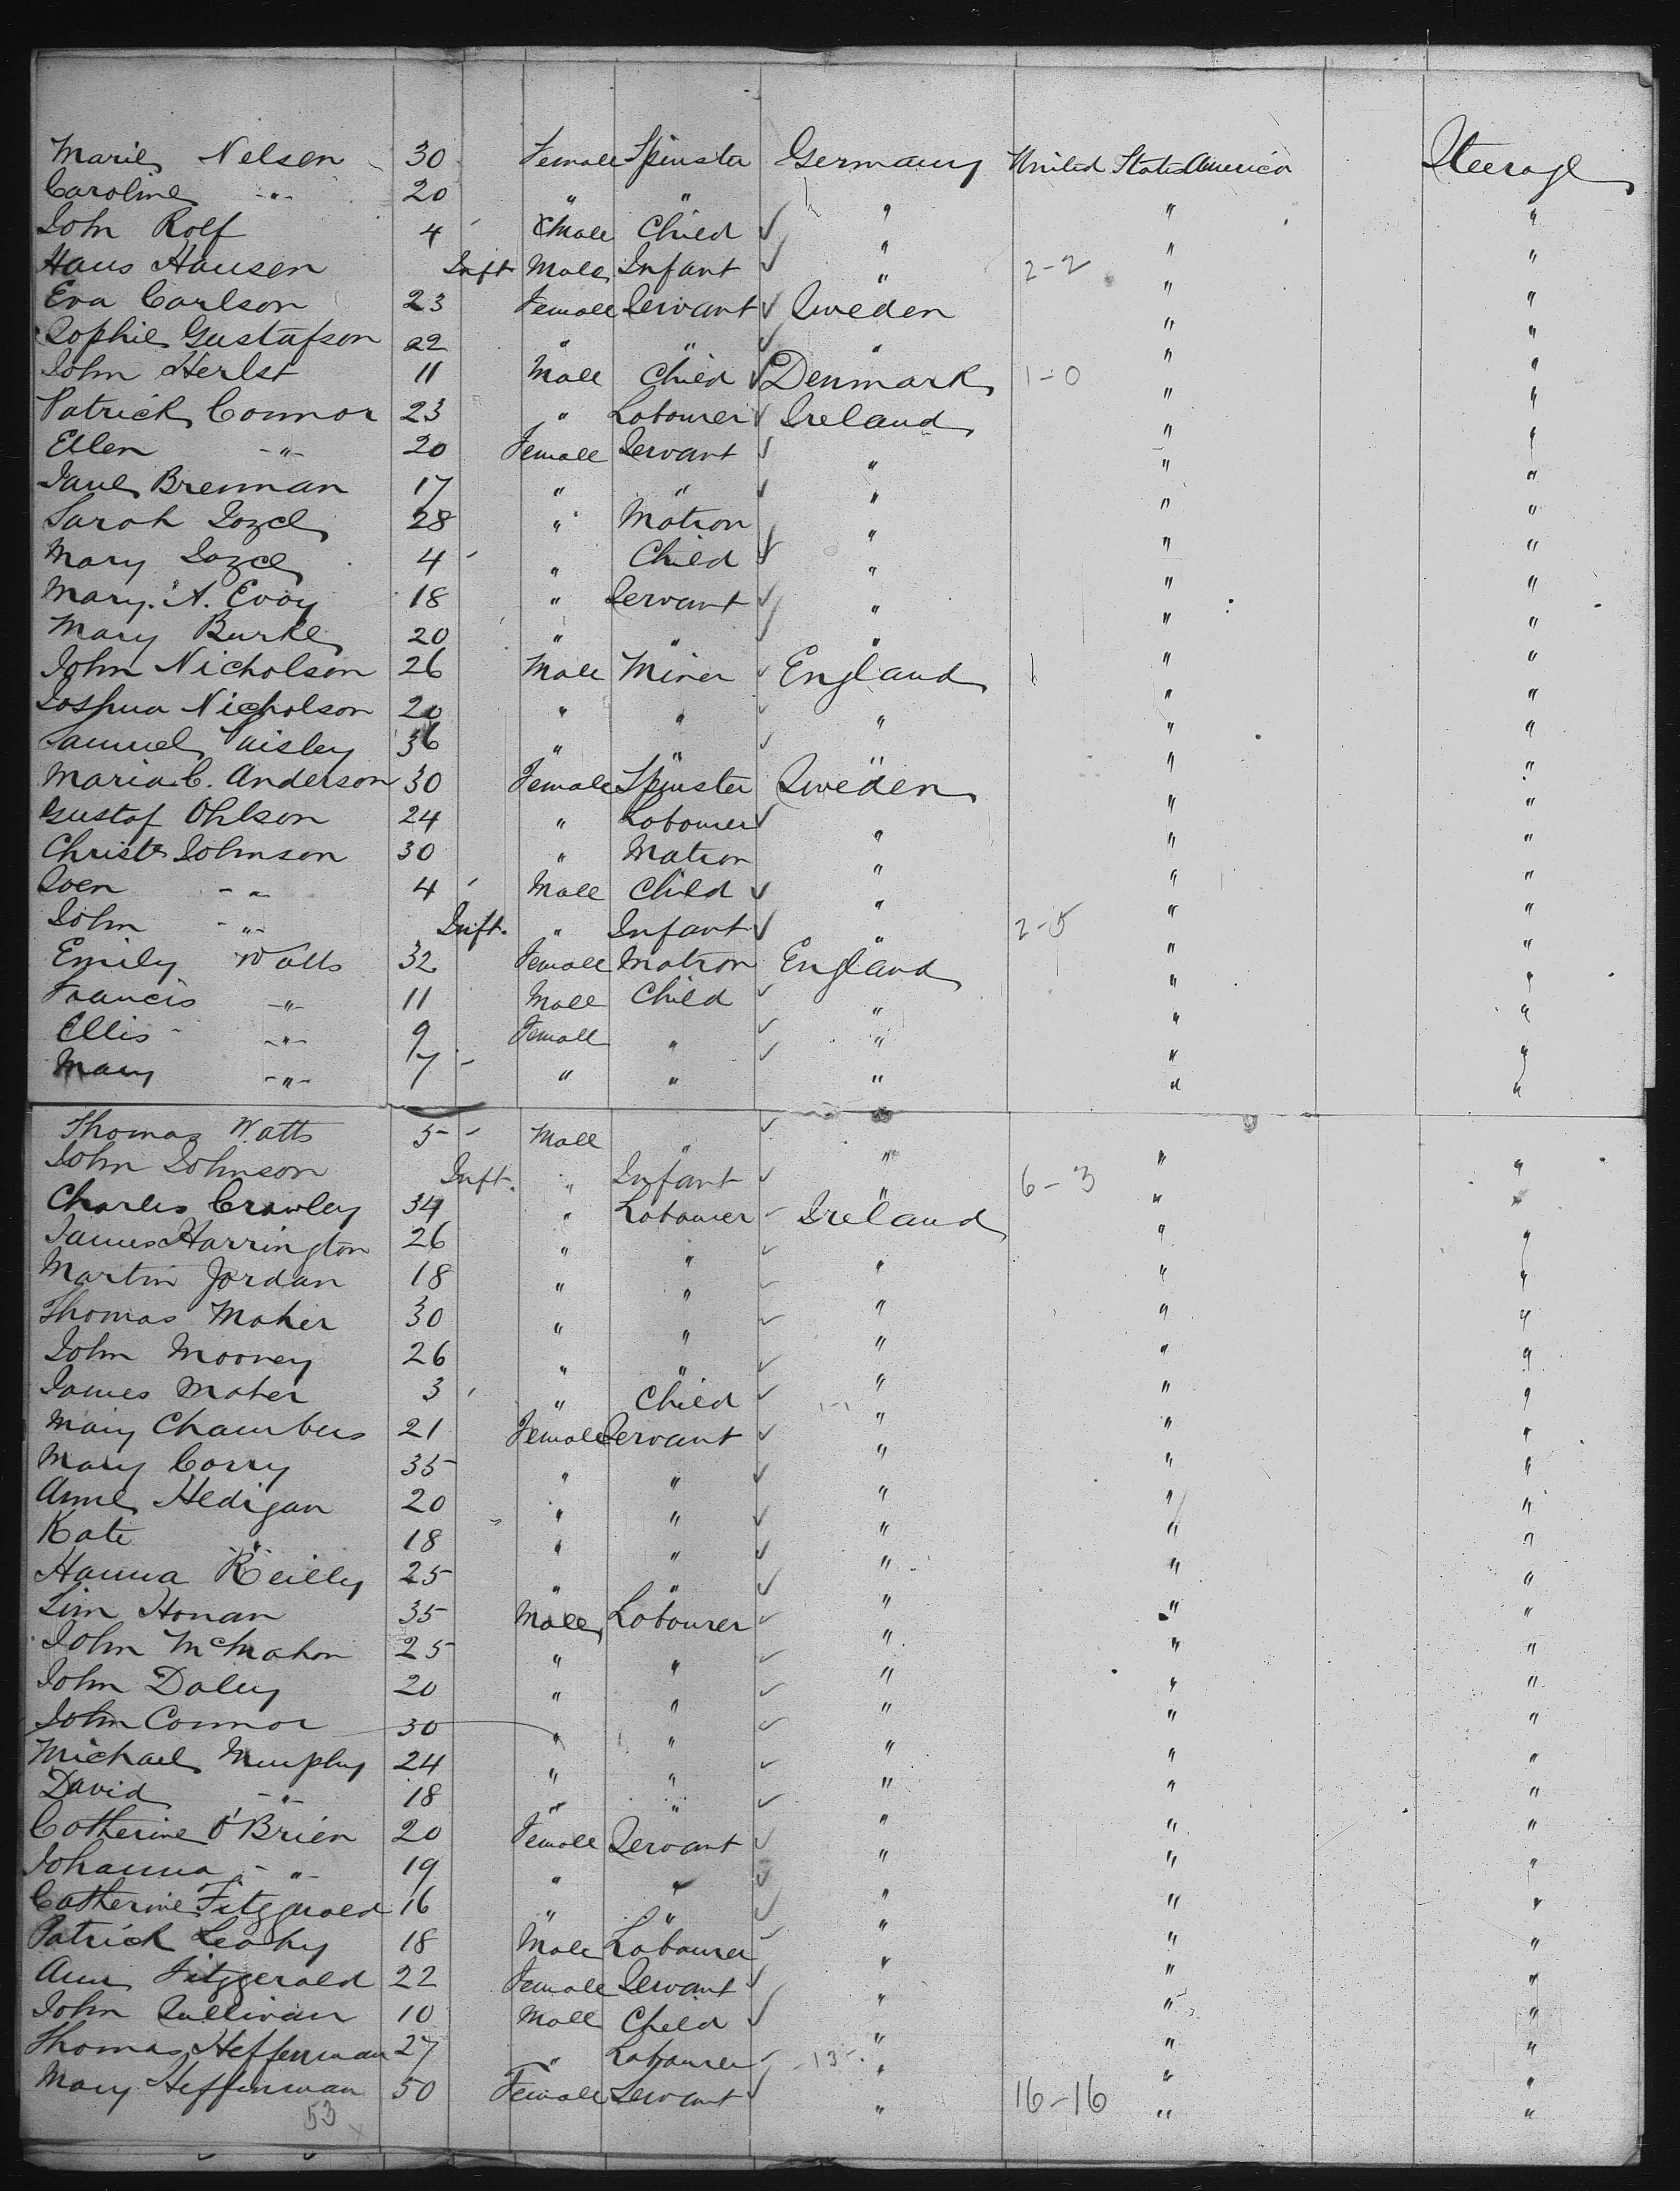 Marie Nelsen 30 Female Spinster Germany United States America Steerage
Caroline -"- 20 " " " " "
John Rolf 4 Male Child " " "
Hans Hansen Inft Male Infant " 2-2 " "
Eva Carlson 23 Female Servant Sweden " "
Sophie Gustafson 22 " " " " "
John Herlst 11 Male Child Denmark 1-0 " "
Patrick Connor 23 " Labourer Ireland " "
Ellen -"- 20 Female Servant " " "
Jane Brennan 17 " " " " "
Sarah 28 " Matron " " "
Mary 4 " Child " " "
Mary. A. Evoy 18 " Servant " " "
Mary Burke 20 " " " " "
John Nicholson 26 Male Miner England " "
Joshua Nicholson 20 " " " " "
Samuel 36 " " " " "
Maria C. Anderson 30 Female Spinster Sweden " "
Gustaf Ohlson 24 " Labourer " " "
Christe Johnson 30 " Matron " " "
Sven -"- 4 Male Child " " "
John -"- Inft. " Infant " 2-5 " "
Emily Watts 32 Female Matron England " "
Francis -"- 11 Male Child " " "
Ellis -"- 9 Female " " " "
Mary -"- 7 " " " " "
Thomas Watts 5 Male " " " "
John Johnson Inft. " Infant " 6-3 " "
Charles Crawley 34 " Labourer Ireland " "
James Harrington 26 " " " " "
Martin Jordan 18 " " " " "
Thomas Maher 30 " " " " "
John Mooney 26 " " " " "
James Maher 3 " Child " " "
Mary Chambers 21 Female Servant " " "
Mary Corry 35 " " " " "
Anne Hedigan 20 " " " " "
Kate " 18 " " " " "
Hanna Reilly 25 " " " " "
Tim Honan 35 Male Labourer " " "
John McMahon 25 " " " " "
John Daley 20 " " " " "
John Connor 30 " " " " "
Michael Murphy 24 " " " " "
David -"- 18 " " " " "
Catherine O'Brien 20 Female Servant " " "
Johanna -"- 19 " " " " "
Catherine Fitzgerald 16 " " " " "
Patrick Leahy 18 Male Labourer " " "
Ann Fitzgerald 22 Female Servant " " "
John Sullivan 10 Male Child " " "
Thomas Heffernan 27 " Labourer -13- " " "
Mary Heffernan 50 Female Servant " 16-16 " "
53